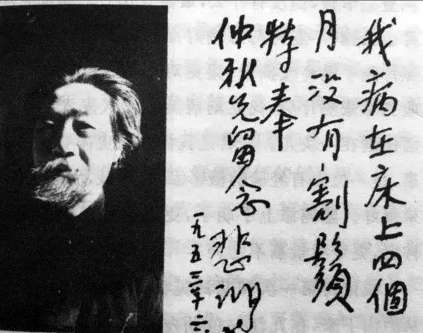 我病在床上四個
月沒有割鬚
特奉
仲秋兄留念 悲鴻
一九五三年六